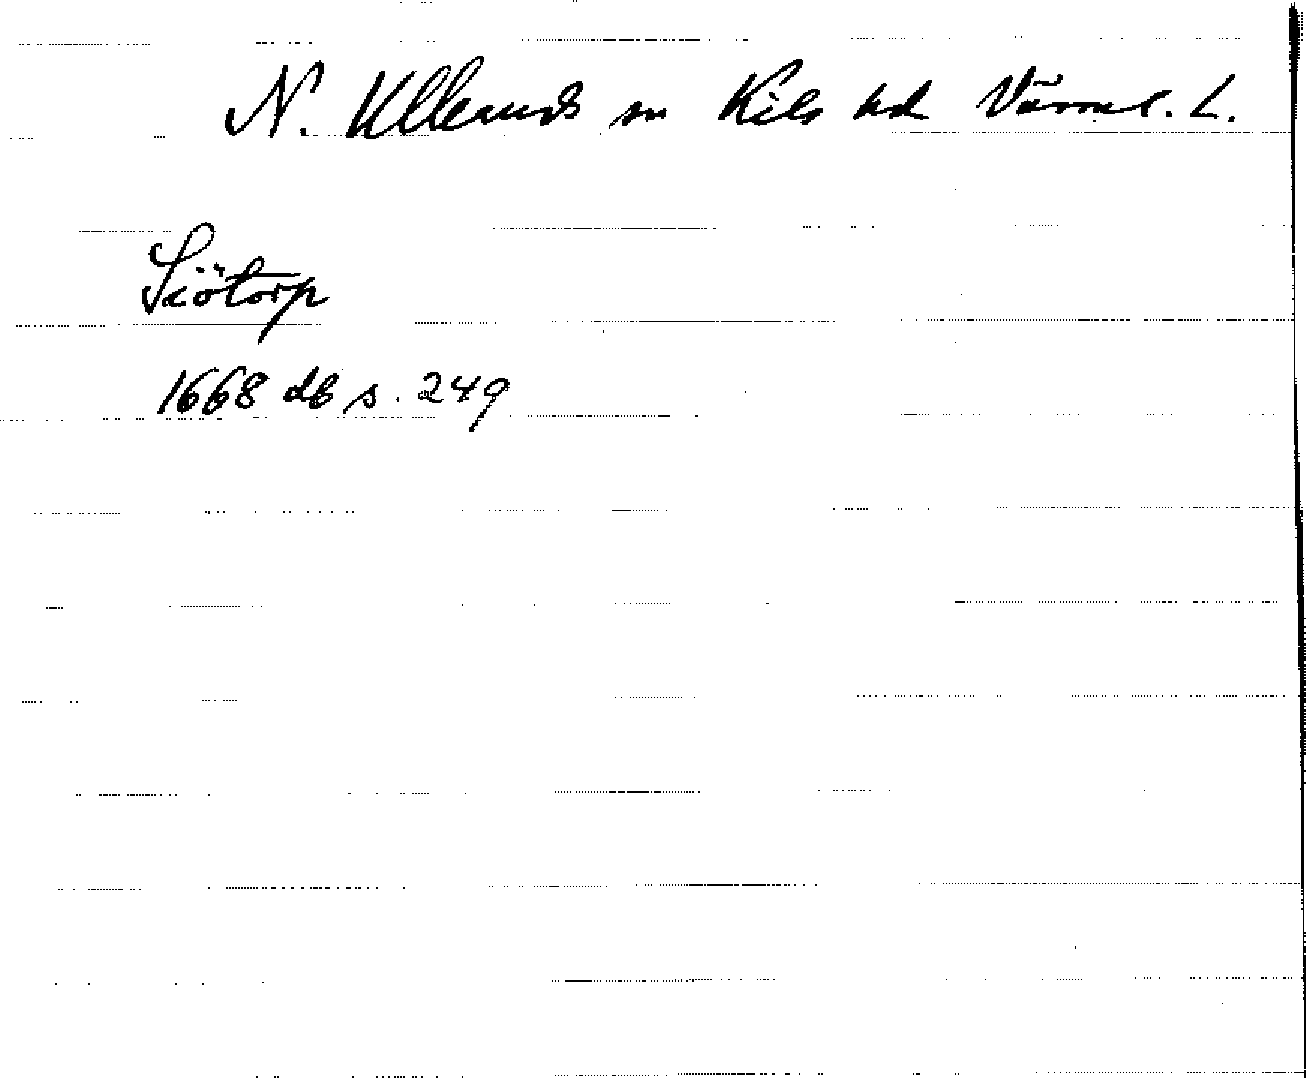 N. Ulleruds sn Kils hd Värml. L.
Siötorp
1668 db s. 249